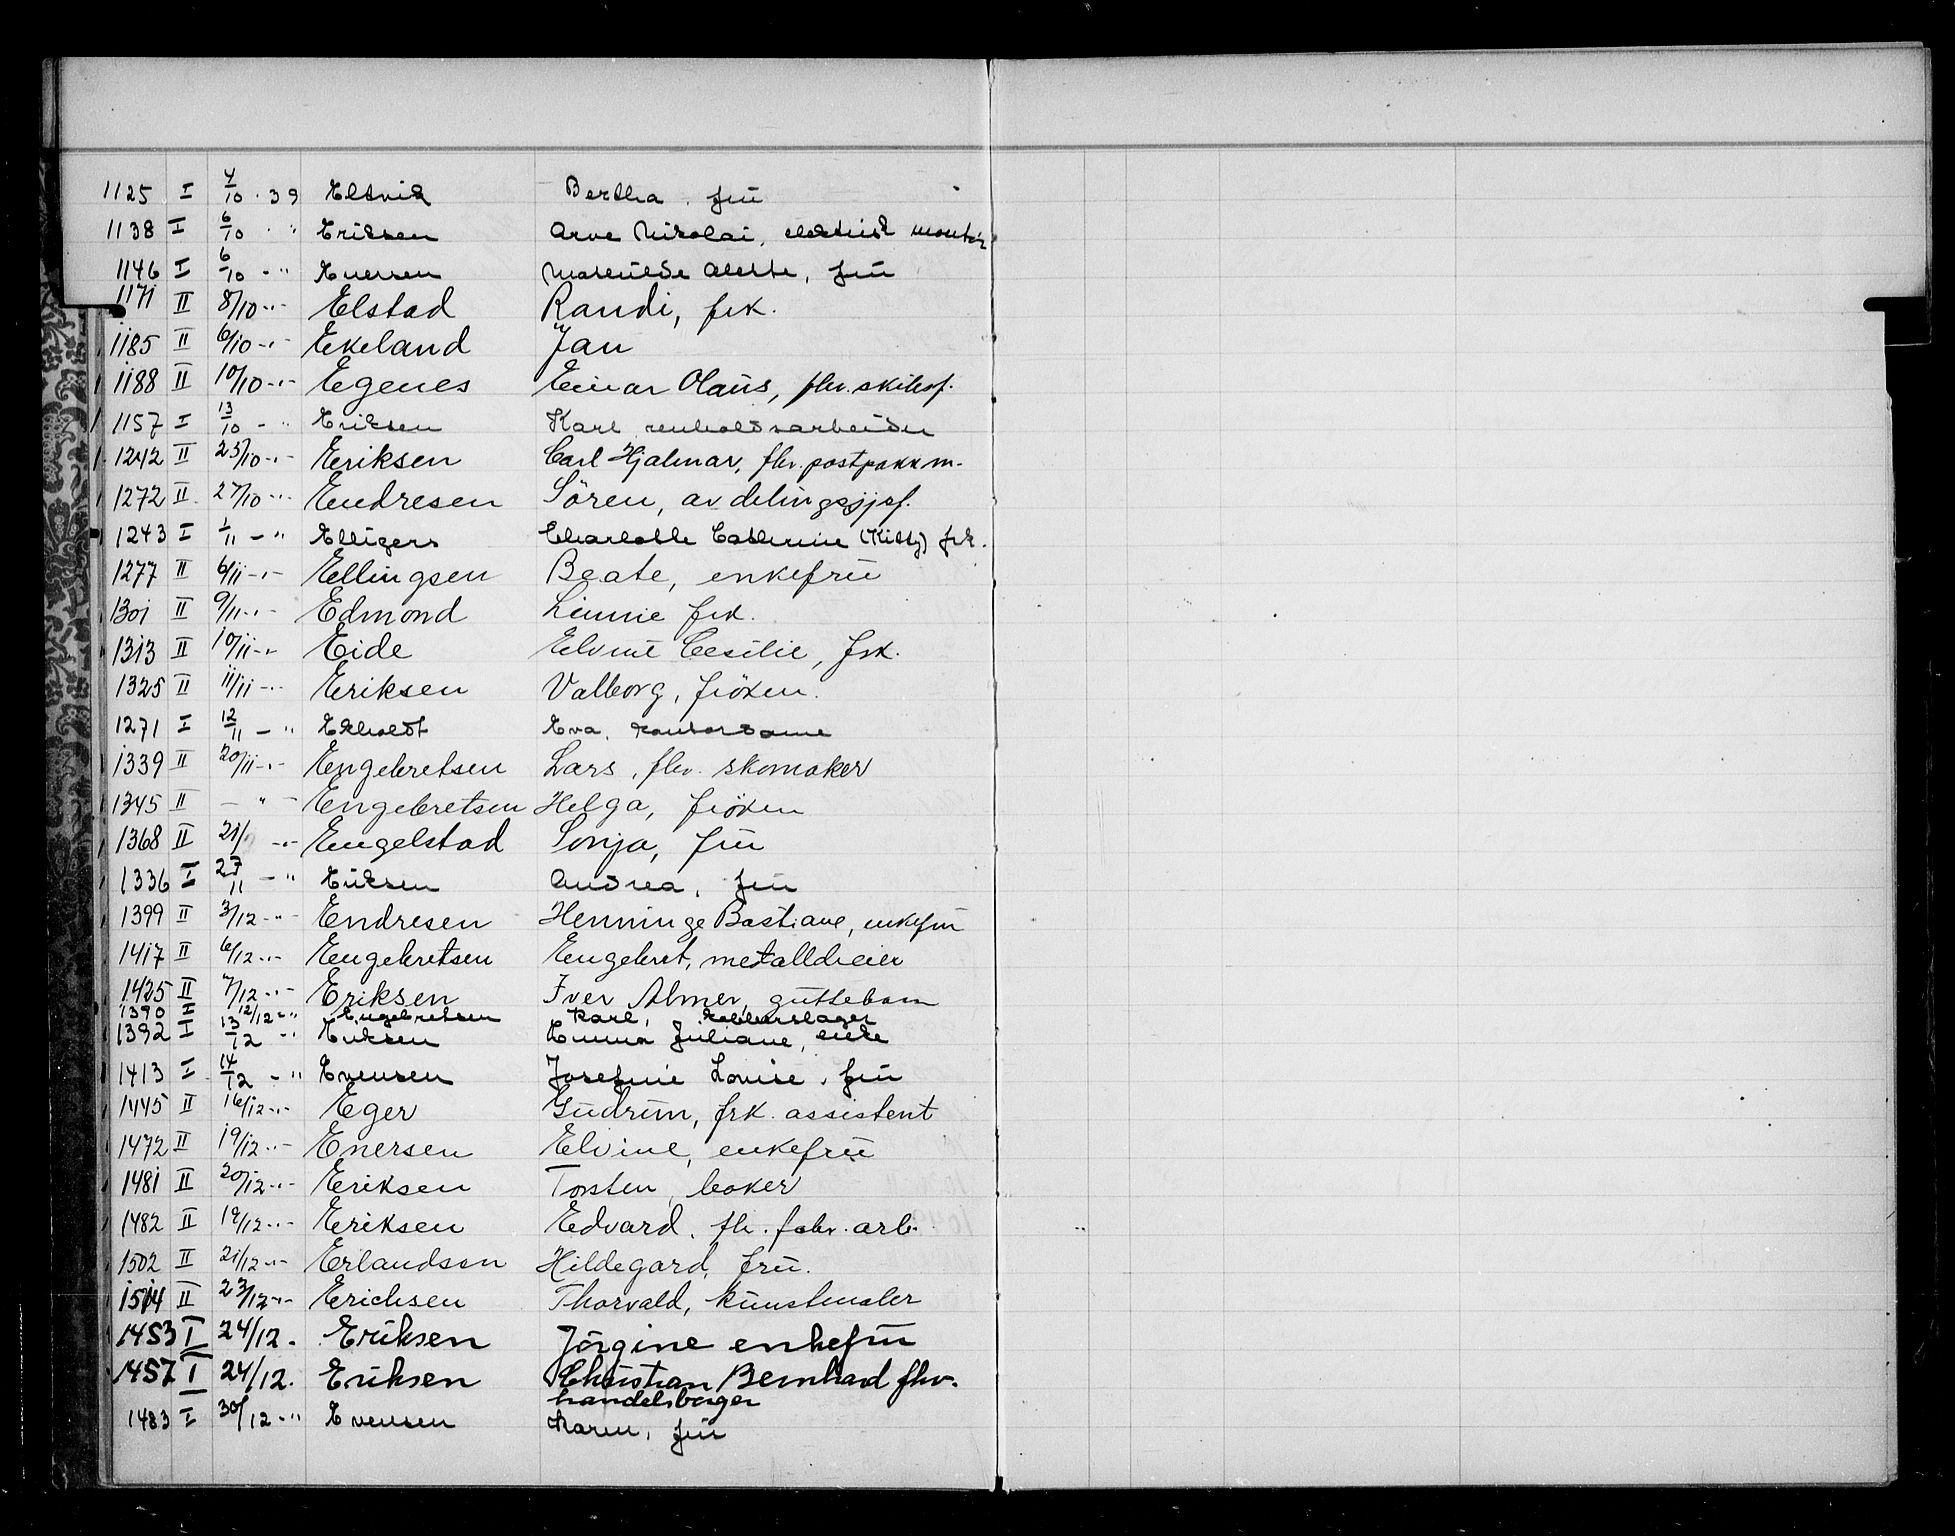 1125 I 4/10 . 39 Eltvik Bertha, frü
1138 I 6/10 . " Eriksen Arve Nikolai, elektrisk montör
1146 I 6/10 - " Enersen Mathilde Alette, frü
1171 II 8/10 -"- Elstad Randi, frk.
1185 II 6/10 -"- Ekeland Jan
1188 II 10/10 -"- Egenes Einar Olaüs, fhv. skibsf.
1157 I 13/10 - " Eriksen Karl renholdsarbeider
1242 II 25/10 -"- Eriksen Carl Hjalmar, fhv. postpakkm.
1272 II 27/10 -"- Endresen Sören, avdelingssjef.
1243 I 1/11 - " Elligers Charlotte Cathrine (Kitty) frk.
1277 II 6/11 -"- Ellingsen Beate, enkefrü
1301 II 9/11 -"- Edmond Linnie frk.
1313 II 10/11 -"- Eide Elvine Cesilie, frk.
1325 II 11/11 -"- Eriksen Valborg, fröken.
1271 I 12/11 - " Ekholdt Eva, kontordame
1339 II 20/11 -"- Engebretsen Lars, fhv. skomaker
1345 II - " - Engebretsen Helga, fröken
1368 II 21/ -"- Engelstad Sonja, frü
1336 I 27/11 - " Eriksen Andrea, frü
1399 II 3/12 -"- Endresen Henninge Bastiane, enkefrü
1417 II 6/12 -"- Engebretsen Engebret, metalldreier
1425 II 7/12 -"- Eriksen Iver Almer, güttebarn
1390 I 12/12 - " Engebretsen Karl, kobberslager
1392 I 13/12 - " Eriksen Emma Juliane, enke
1413 I 14/12 - " Evensen Josefine Lovise, frü
1445 II 16/12 -"- Eger Güdrün, frk. assistent
1472 II 19/12 -"- Enersen Elvine, enkefrü
1481 II 20/12 -"- Eriksen Torsten, baker
1482 II 19/12 -"- Eriksen Edvard, fh. fabr. arb.
1502 II 21/12 -"- Erlandsen Hildegard, frü.
1514 II 23/12 -"- Erichsen Thorvald, künstmaler
1453 I 24/12. Eriksen Jörgine enkefrü
1457 I 24/12. Eriksen Christian Bernhard fhv.
handelsborger
1483 I 30/12 - " Evensen Karen, frü